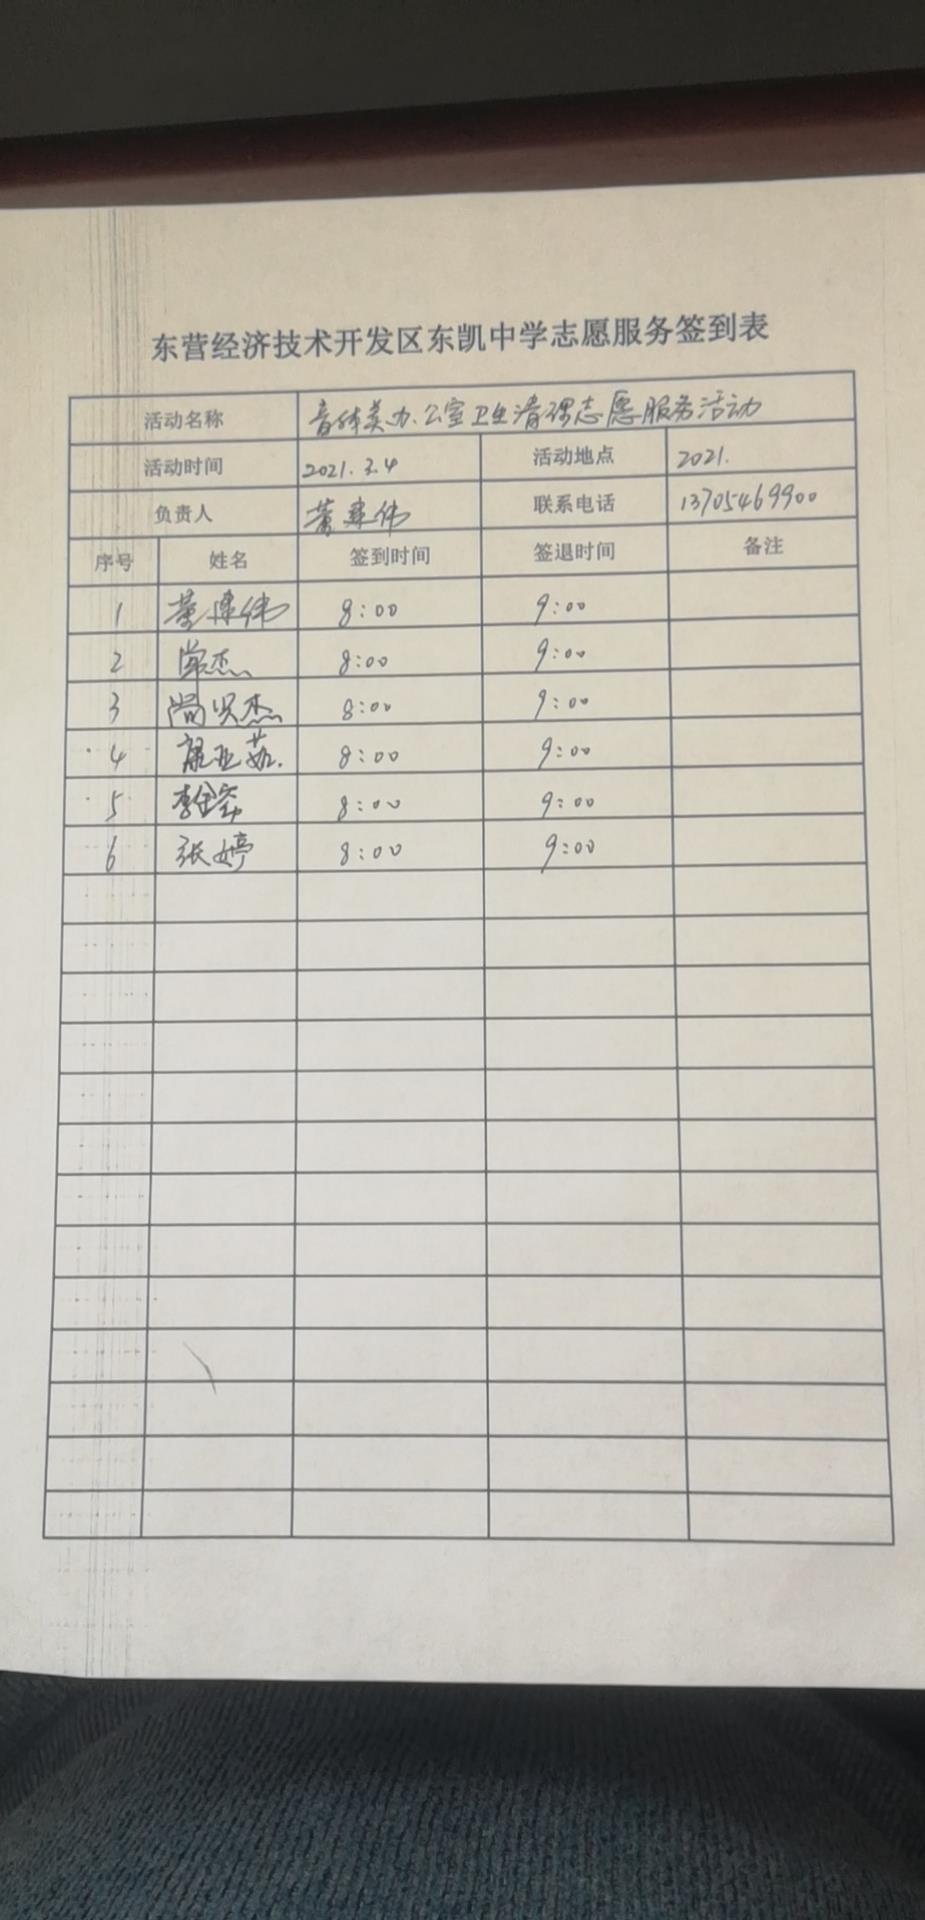 东营经济技术开发区东凯中学志愿服务签到表
活动名称 音体美办公室卫生清理志愿服务活动
活动时间 2021.3.4 活动地点 2021.
负责人 董建伟 联系电话 13705469900
序号 姓名 签到时间 签退时间 备注
1 董建伟 8:00 9:00
2 8:00 9:00
3 尚洪杰 8:00 9:00
4 8:00 9:00
5 8:00 9:00
6 张婷 8:00 9:00